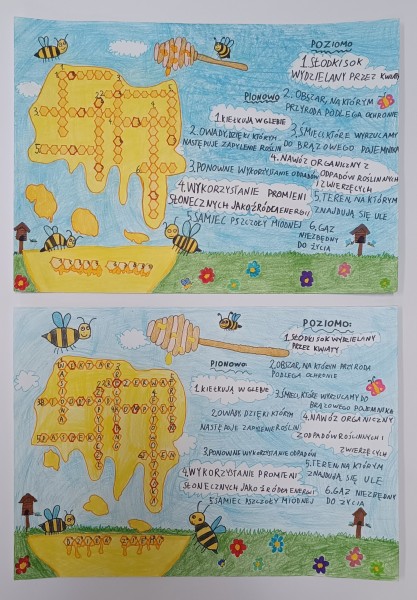 POZIOMO
1. SŁODKI SOK
WYDZIELANY PRZEZ KWIATY
PIONOWO
2. OBSZAR, NA KTÓRYM
PRZYRODA PODLEGA OCHRONIE
1. KIEŁKUJĄ W GLEBIE
2. OWADY, DZIĘKI KTÓRYM
NASTĘPUJE ZAPYLENIE ROŚLIN
3. ŚMIECI, KTÓRE WYRZUCAMY
DO BRĄZOWEGO POJEMNIKA
3. PONOWNE WYKORZYSTANIE ODPADÓW
4. NAWÓZ ORGANICZNY Z
ODPADÓW ROŚLINNYCH
I ZWIERZĘCYCH
4. WYKORZYSTANIE PROMIENI
SŁONECZNYCH JAKO ŹRÓDŁA ENERGII
5. TEREN, NA KTÓRYM
ZNAJDUJĄ SIĘ ULE
5. SAMIEC PSZCZOŁY MIODNEJ
6. GAZ
NIEZBĘDNY
DO ŻYCIA
POZIOMO:
1. SŁODKI SOK WYDZIELANY
PRZEZ KWIATY
PIONOWO:
2. OBSZAR, NA KTÓRYM PRZYRODA
PODLEGA OCHRONIE
1. KIEŁKUJĄ W GLEBIE
3. ŚMIECI, KTÓRE WYRZUCAMY DO
BRĄZOWEGO POJEMNIKA
2. OWADY, DZIĘKI KTÓRYM
NASTĘPUJE ZAPYLENIE ROŚLIN
4. NAWÓZ ORGANICZNY
Z ODPADÓW ROŚLINNYCH I
ZWIERZĘCYCH
3. PONOWNE WYKORZYSTANIE ODPADÓW
4. WYKORZYSTANIE PROMIENI
SŁONECZNYCH JAKO ŹRÓDŁA ENERGII
5. TEREN NA KTÓRYM
ZNAJDUJĄ SIĘ ULE
5. SAMIEC PSZCZOŁY MIODNEJ
6. GAZ NIEZBĘDNY
DO ŻYCIA
NEKTAR